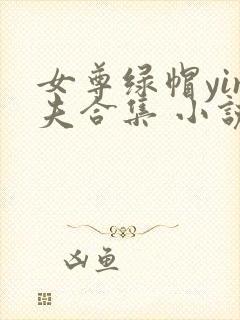 女尊绿帽yin
夫合集 小説
凶鱼